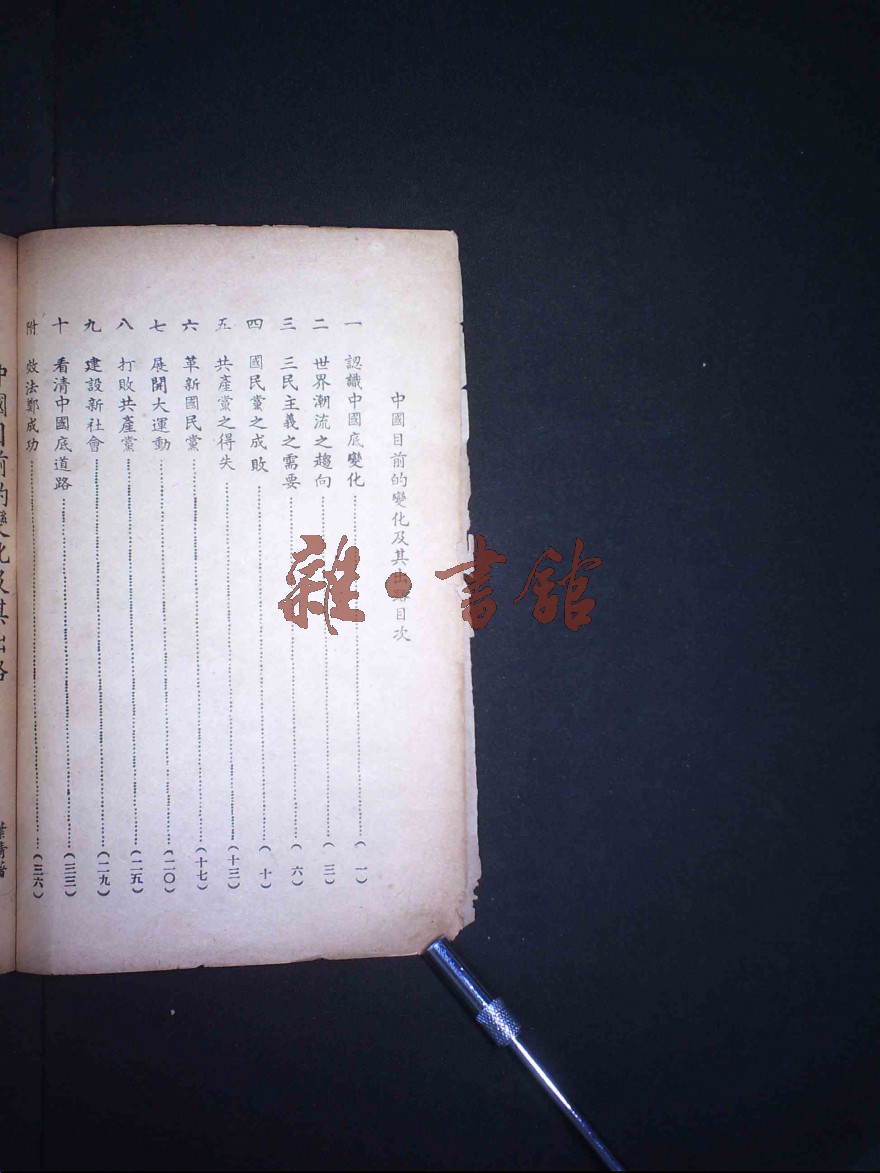 中國目前的變化及其出路目次
一 認識中國底變化……（一）
二 世界潮流之趨向……（三）
三 三民主義之需要……（六）
四 國民黨之成敗……（十）
五 共產黨之得失……（十三）
六 革新國民黨……（十七）
七 展開大運動……（二〇）
八 打敗共產黨……（二五）
九 建設新社會……（二九）
十 看清中國底道路……（三三）
附 效法鄭成功……（三六）
中國目前的變化及其出路
葉青著
雜·書館